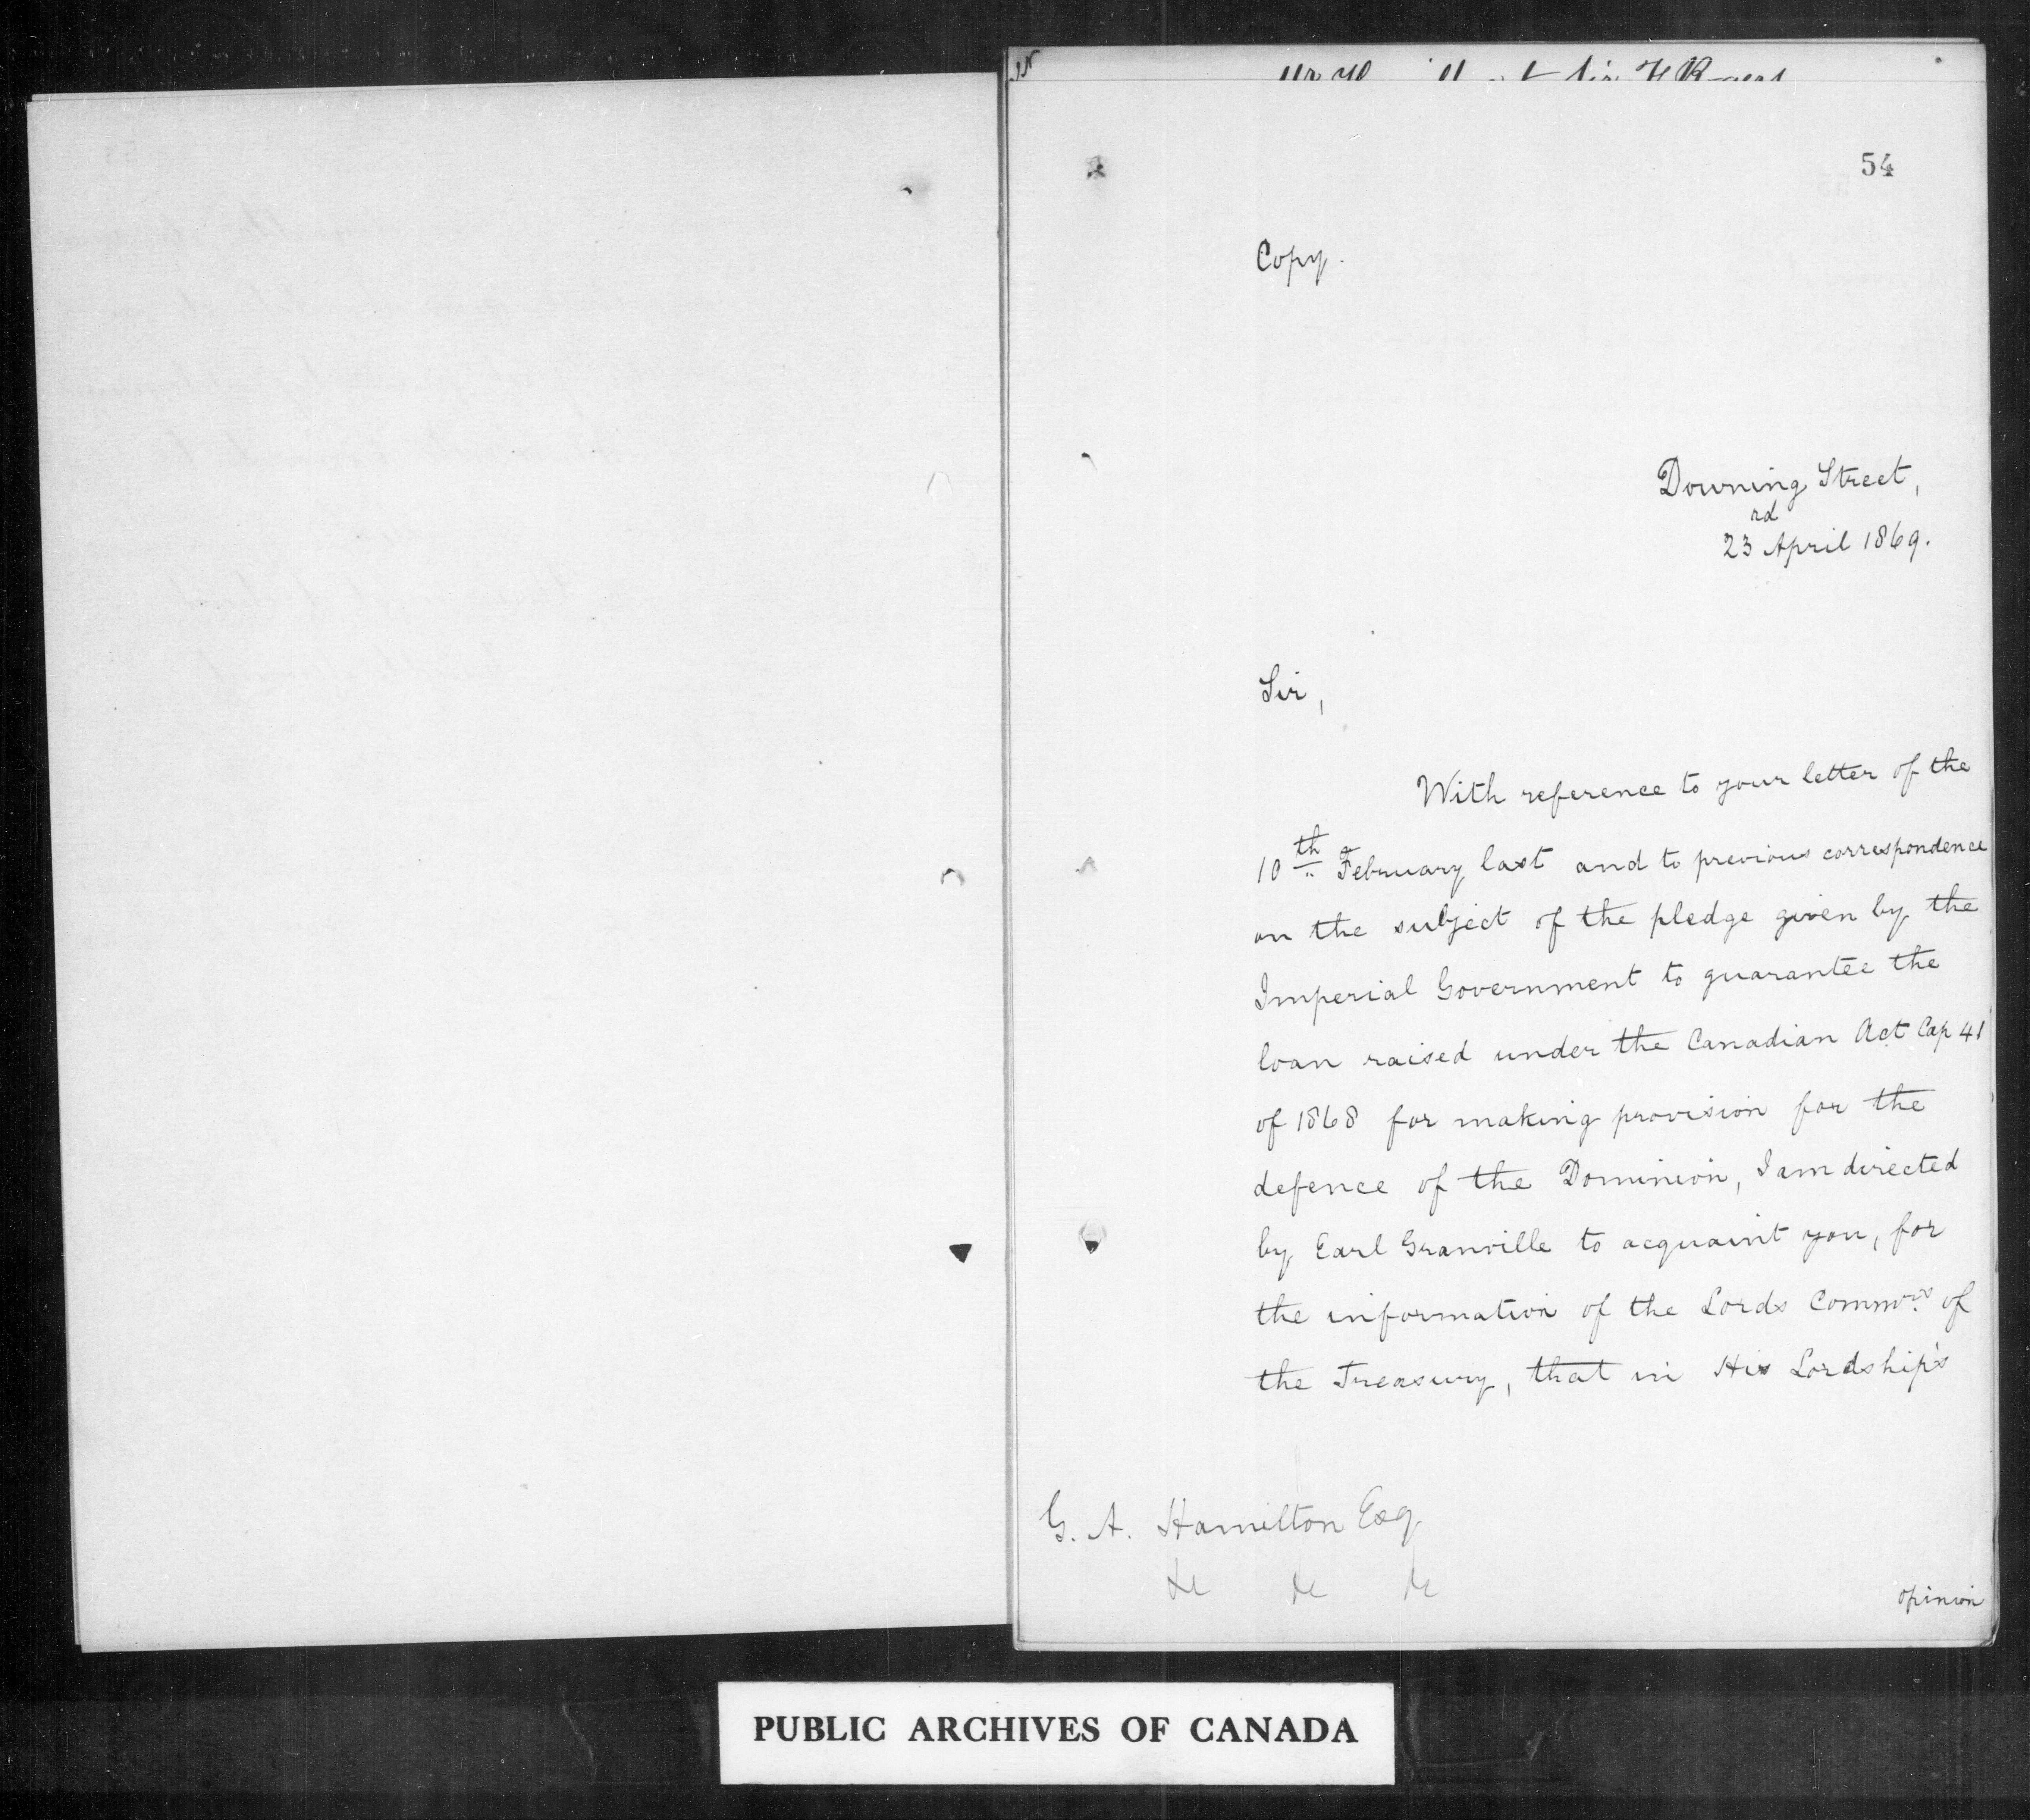 54
Copy.
Downing Street,
23rd April 1869.
Sir,
With reference to your letter of the
10th February last and to previous correspondence
on the subject of the pledge given by the
Imperial Government to guarantee the
loan raised under the Canadian Act Cap 41
of 1868 for making provision for the
defence of the Dominion, I am directed
by Earl Granville to acquaint you, for
the information of the Lords Commrs. of
the Treasury, that in His Lordship's
G. A. Hamilton Esq
&c &c &c
opinion
PUBLIC ARCHIVES OF CANADA